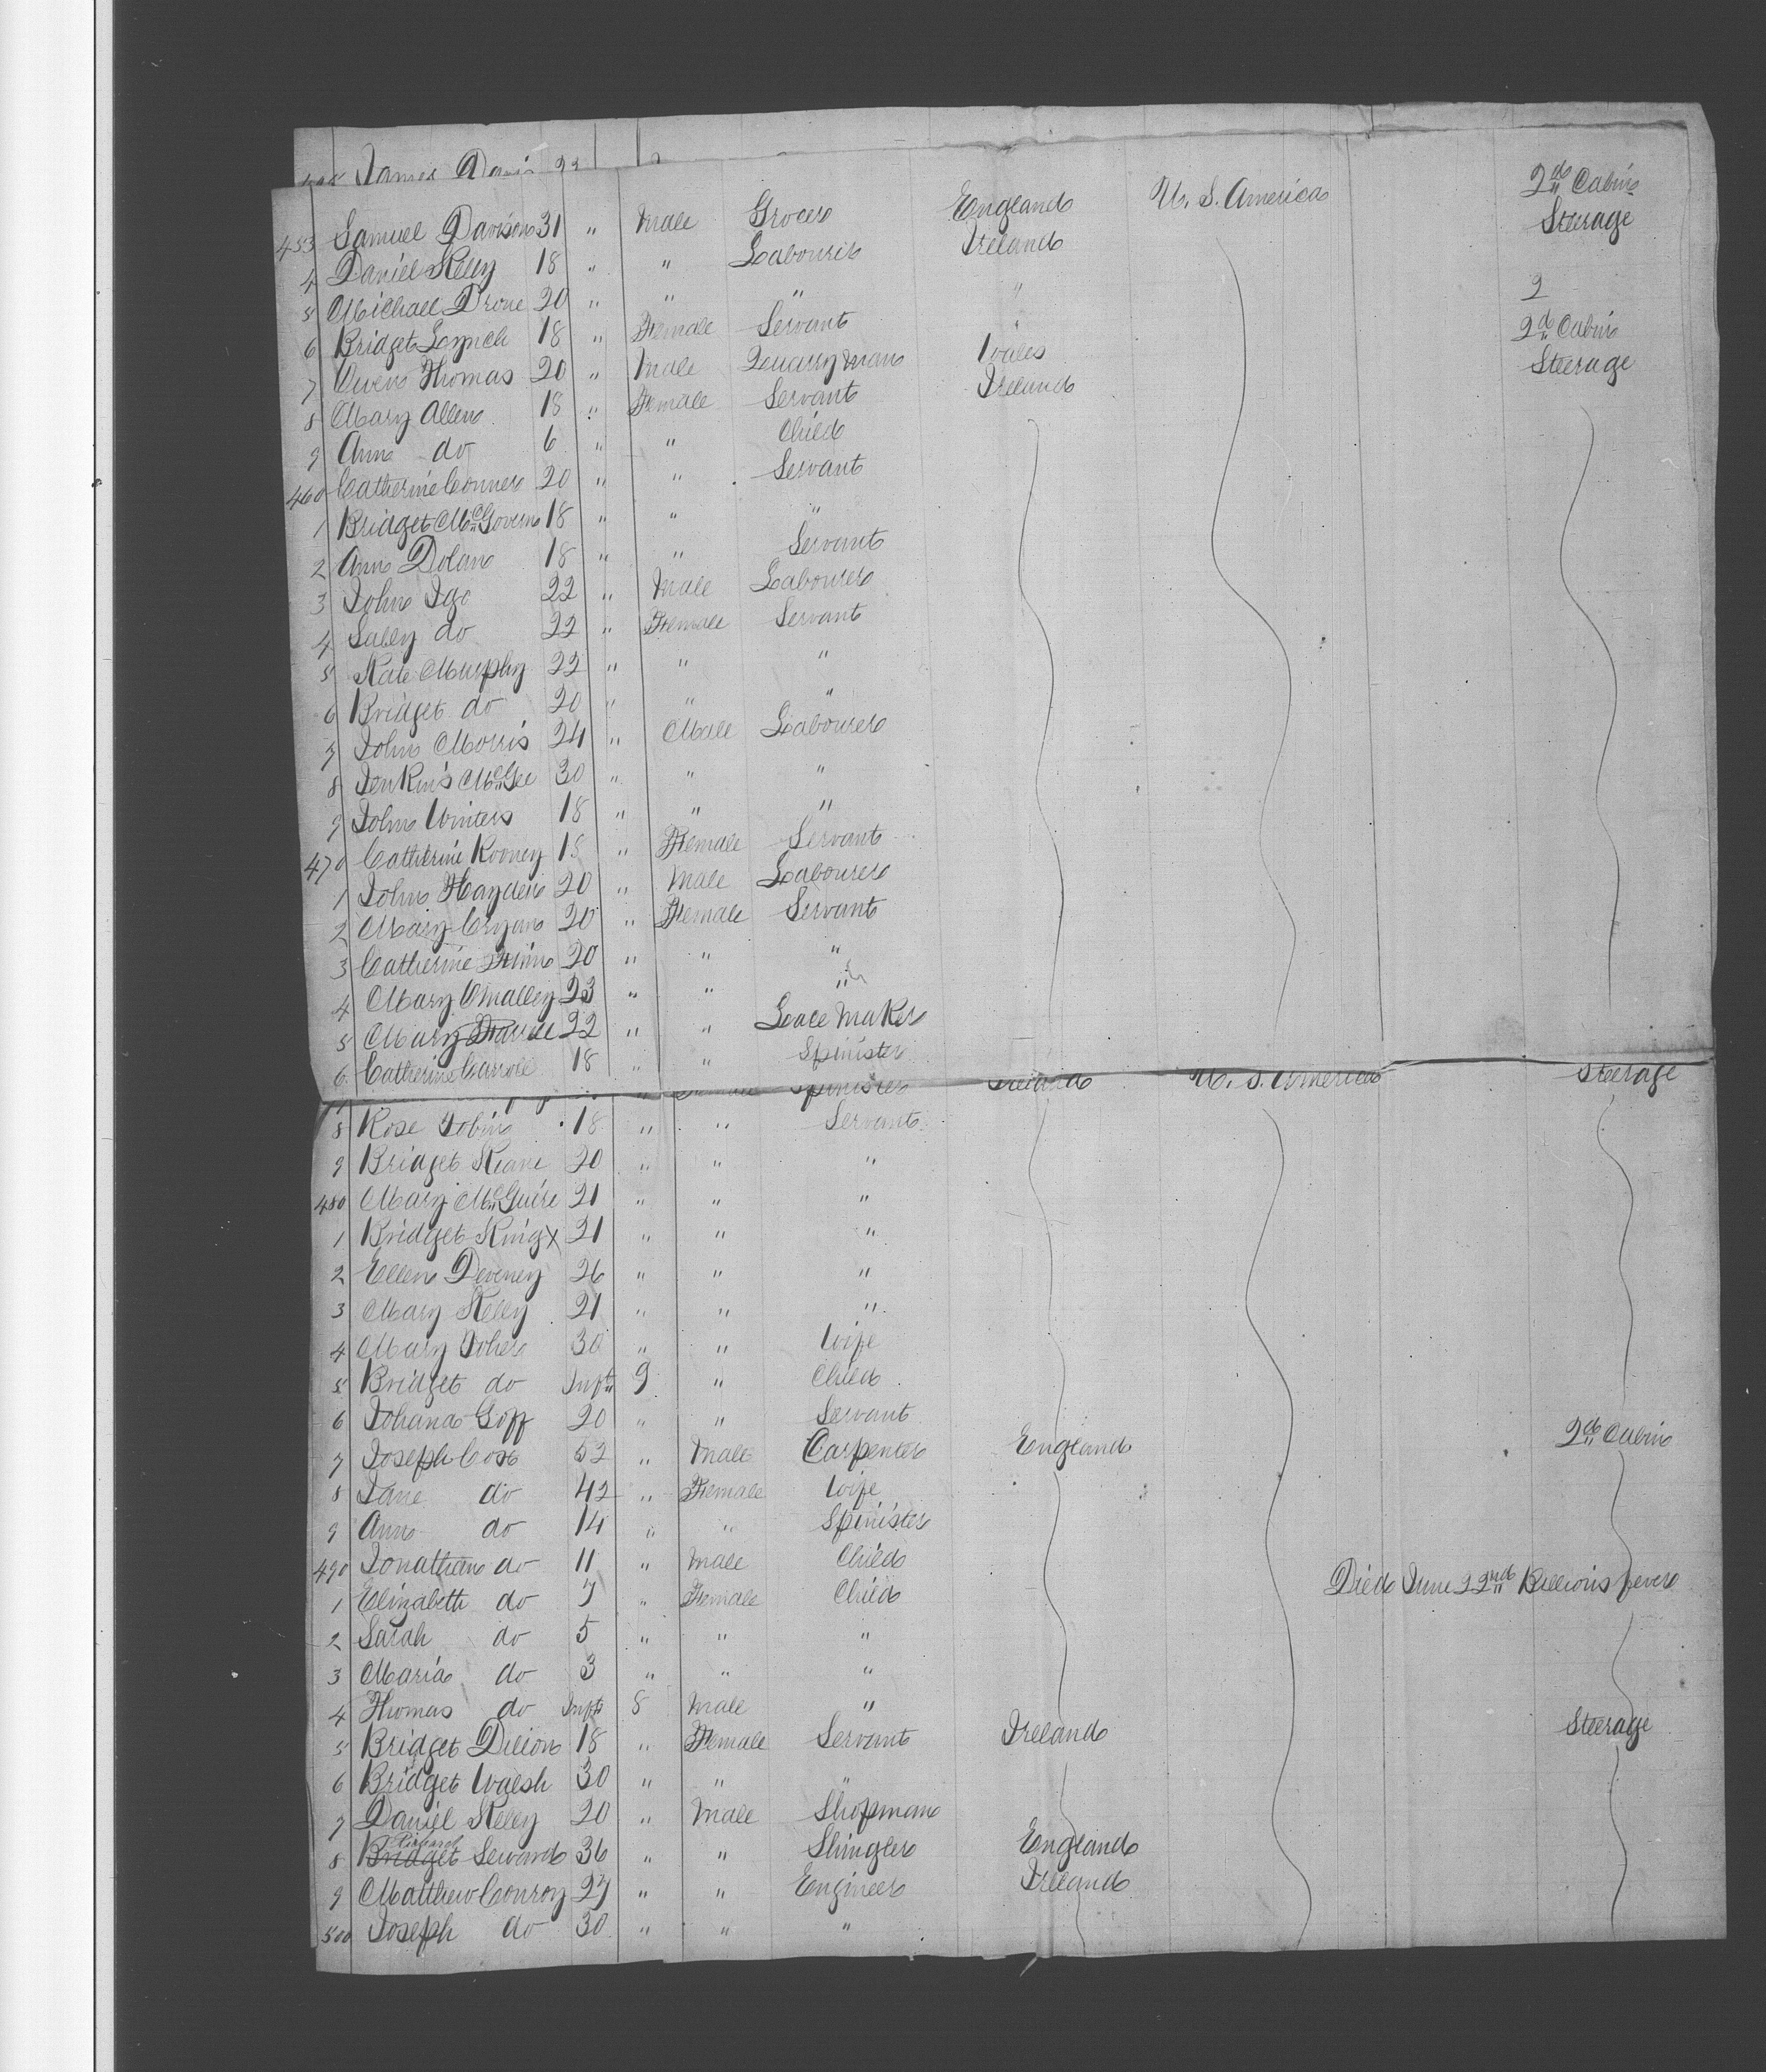 James Davis 23
453 Samuel Davison 31 " Male Grocer England U. S. America 2nd Cabin
4 Daniel Kelly 18 " " Labourer Ireland Steerage
5 Michael Drone 20 " " " "
6 Bridget Lynch 18 " Female Servant " 2
7 Owen Thomas 20 " Male Quarryman Wales 2d Cabin
8 Mary Allen 18 " Female Servant Ireland Steerage
9 Ann do 6 " " Child
460 Catherine Conner 20 " " Servant
1 Bridget McGovern 18 " " "
2 Ann Dolan 18 " " Servant
3 John Igo 22 " Male Labourer
4 Sally do 22 " Female Servant
5 Kate Murphy 22 " " "
6 Bridget do 20 " " "
7 John Morris 24 " Male Labourer
8 Jenkins McGee 30 " " "
9 John Winters 18 " " "
470 Catherine Rooney 18 " Female Servant
1 John Hayden 20 " Male Labourer
2 Mary Cryan 20 " Female Servant
3 Catherine 20 " " "
4 Mary Omalley 23 " " "
5 Mary 22 " " Lace Maker
6 Catherine Carroll 18 " " Spinister
7 " Female Spinister Ireland U. S. America Steerage
8 Rose Tobin 18 " " Servant
9 Bridget Keane 20 " " "
480 Mary McGuire 21 " " "
1 Bridget King X 21 " " "
2 Ellen Deveney 26 " " "
3 Mary Kelly 21 " " "
4 Mary Toher 30 " " Wife
5 Bridget do Inft 9 " Child
6 Johana Goff 20 " " Servant
7 Joseph Cox 52 " Male Carpenter England 2d Cabin
8 Jane do 42 " Female Wife
9 Ann do 14 " " Spinister
490 Jonathan do 11 " Male Child
1 Elizabeth do 7 " Female Child Died June 22nd Billious fever
2 Sarah do 5 " " "
3 Maria do 3 " " "
4 Thomas do Inft 8 Male "
5 Bridget Dillon 18 " Female Servant Ireland Steerage
6 Bridget Walsh 30 " " "
7 Daniel Kelly 20 " Male Shopman
Richard
8 Bridget Seward 36 " " Shingler England
9 Matthew Conroy 27 " " Engineer Ireland
500 Joseph do 30 " " "